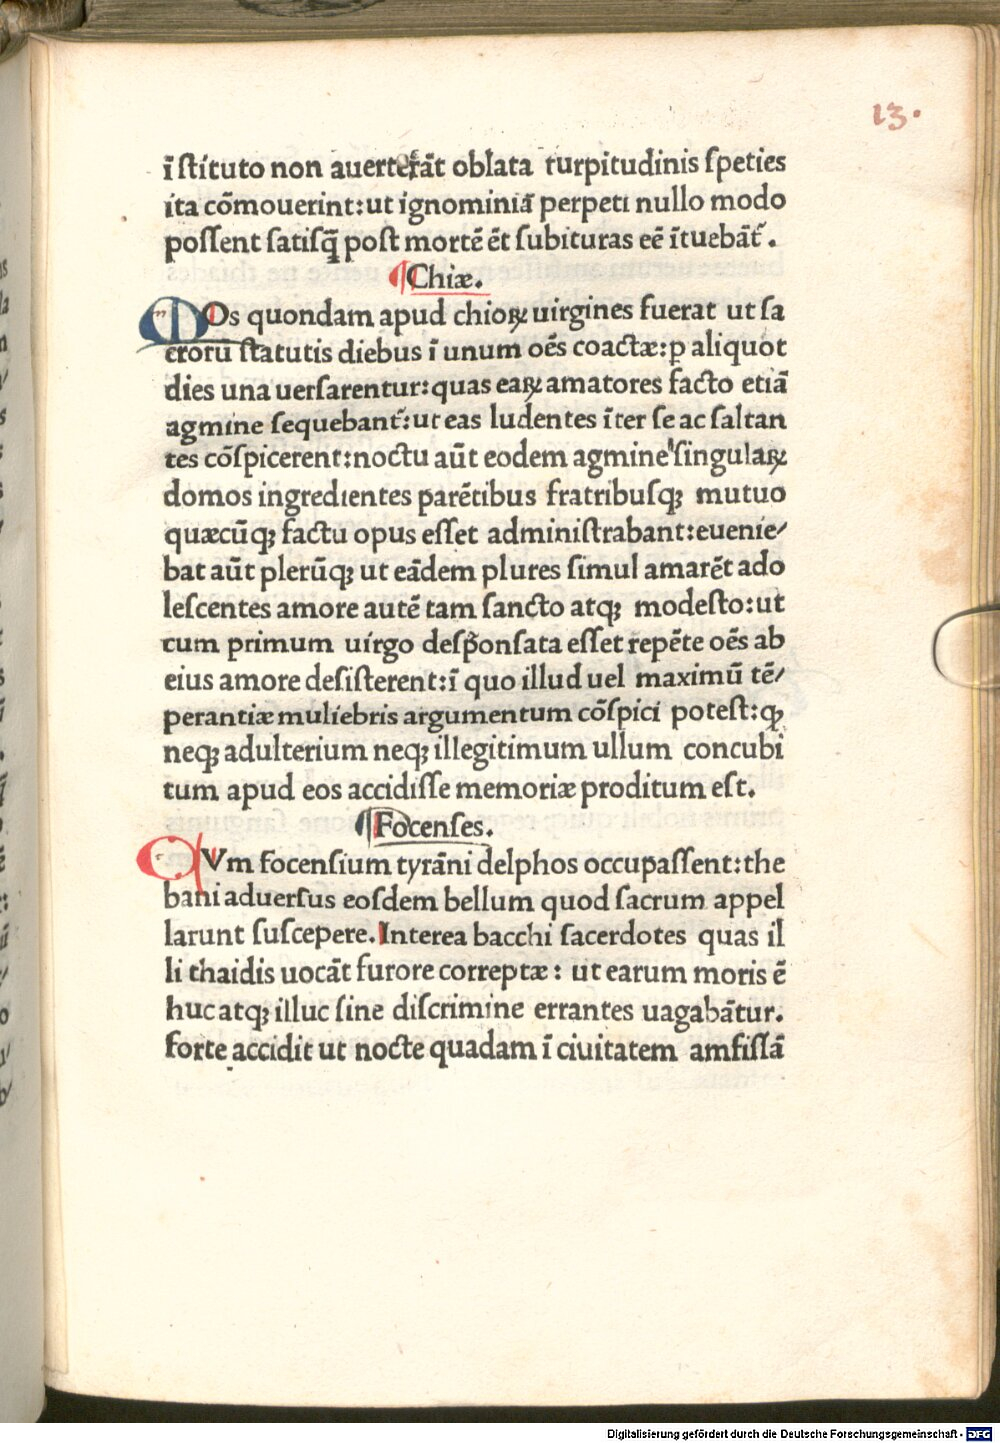 13.
ī ſtituto non auerterāt oblata turpitudinis ſpeties
ita cōmouerint:ut ignominiā perpeti nullo modo
poſſent ſatiſq̄ poſt mortē ēt ſubituras eē ītuebāt᷑.
¶Chiæ.
MOs quondam apud chioꝝ uirgines fuerat ut ſa
croru ſtatutis diebus ī unum oēs coactæ:ꝑ aliquot
dies una uerſarentur:quas eaꝝ amatores facto etiā
agmine ſequebant᷑:ut eas ludentes īter ſe ac ſaltan
tes cōſpicerent:noctu aūt eodem agmine ſingulaꝝ
domos ingredientes parētibus fratribuſqꝫ mutuo
quæcūqꝫ factu opus eſſet adminiſtrabant:euenie/
bat aūt plerūqꝫ ut eādem plures ſimul amarēt ado
leſcentes amore autē tam ſancto atqꝫ modeſto:ut
cum primum uirgo deſponſata eſſet repēte oēs ab
eius amore deſiſterent:ī quo illud uel maximū tē/
perantiæ muliebris argumentum cōſpici poteſt:qꝫ
neqꝫ adulterium neqꝫ illegitimum ullum concubi
tum apud eos accidiſſe memoriæ proditum eſt.
¶Focenſes.
CVm focenſium tyrāni delphos occupaſſent:the
bani aduerſus eoſdem bellum quod ſacrum appel
larunt ſuſcepere.Interea bacchi ſacerdotes quas il
li thaidis uocāt furore correptæ: ut earum moris ē
huc atqꝫ illuc ſine diſcrimine errantes uagabātur.
forte accidit ut nocte quadam ī ciuitatem amfiſſā
Digitalisierung gefördert durch die Deutsche Forschungsgemeinschaft - DFG